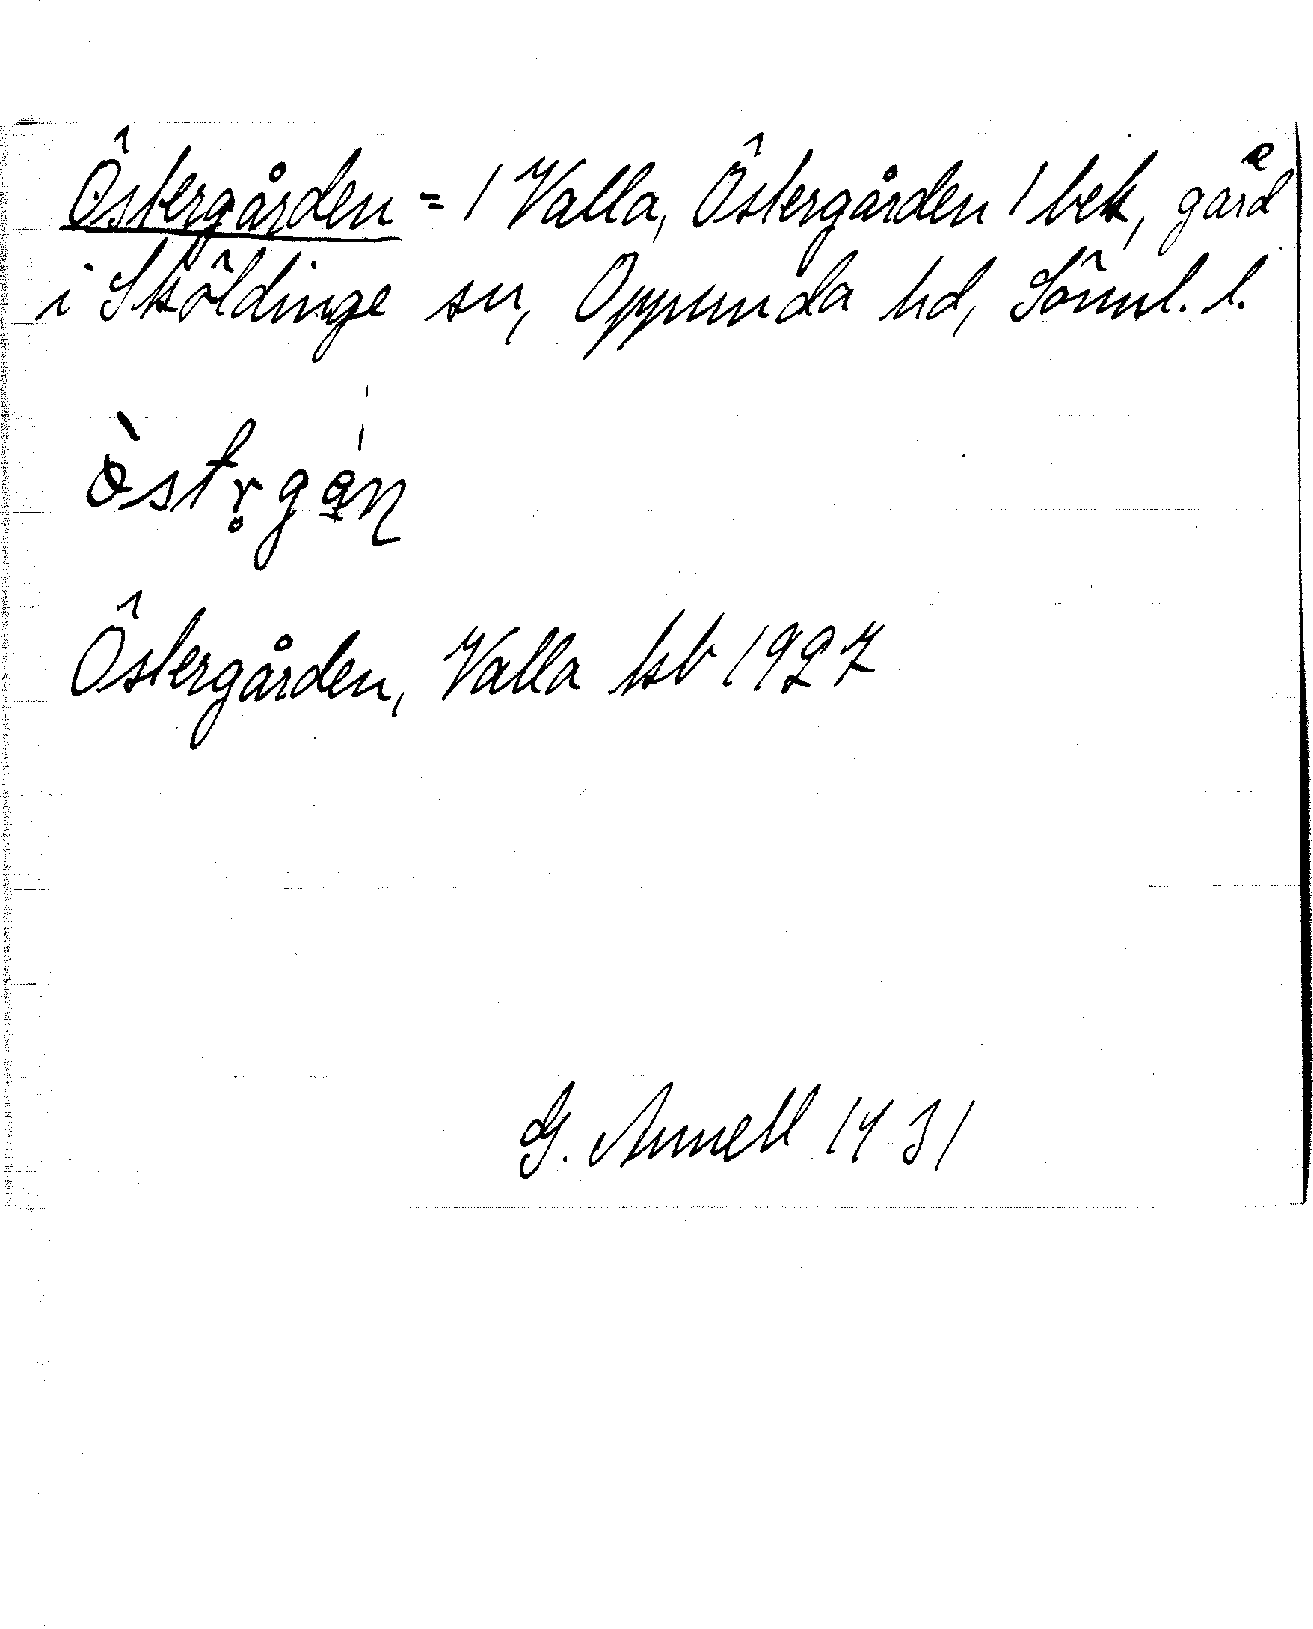 Östergården = / Valla, Östergården / bek, gård
i Sköldinge sn, Oppunda hd, Sörml. l.
Östergården, Valla kb 1927
G. Annell 1931